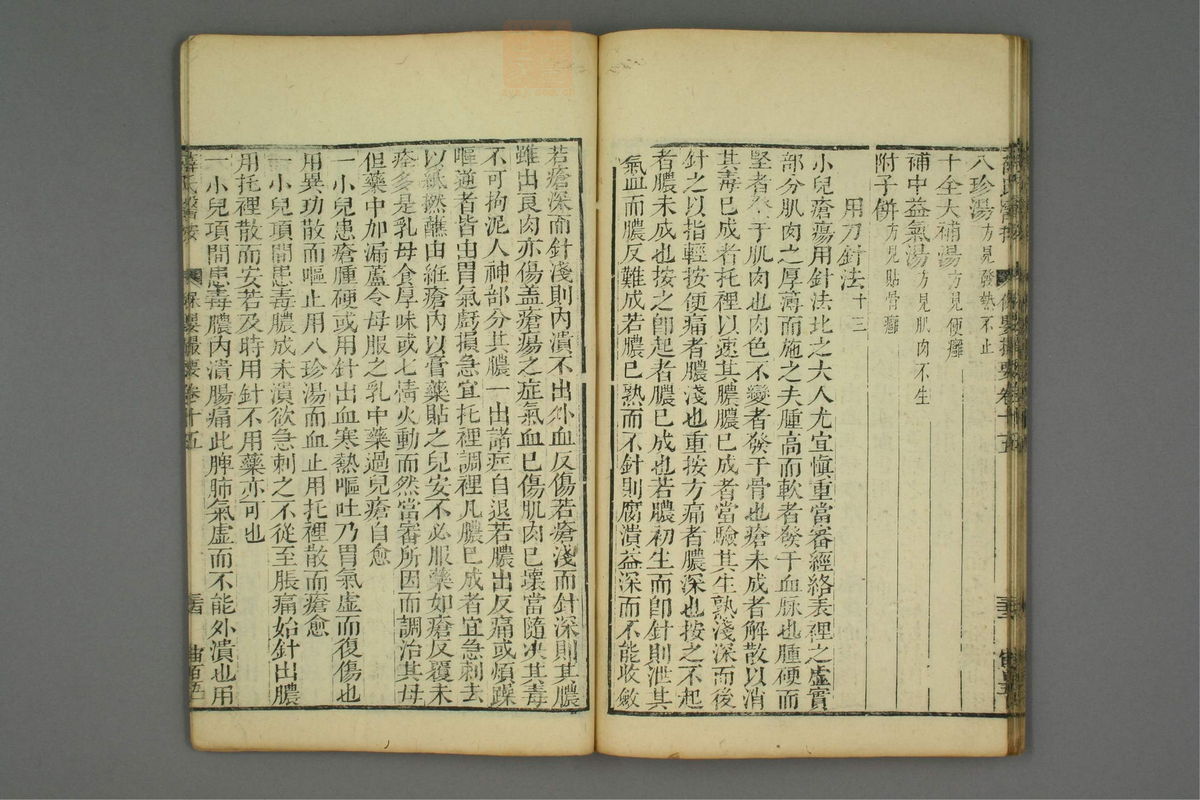 八珍湯方見發熱不止
十全大補湯方見便癰
補中益氣湯方見肌肉不生
附子餅方見貼骨癰
用刀針法十三
小兒瘡瘍用針法比之大人尤宜愼重當審經絡表裡之虛實
部分肌肉之厚薄而施之夫腫高而軟者發于血脉也腫硬而
堅者發于肌肉也肉色不變者發于骨也瘡未成者解散以消
其毒已成者托裡以速其膿膿已成者當驗其生熟淺深而後
針之以指輕按便痛者膿淺也重按方痛者膿深也按之不起
者膿未成也按之卽起者膿已成也若膿初生而卽針則泄其
氣血而膿反難成若膿已熟而不針則腐潰益深而不能收斂
若瘡深而針淺則內潰不出外血反傷若瘡淺而針深則其膿
雖出良肉亦傷盖瘡瘍之症氣血已傷肌肉已壞當隨决其毒
不可拘泥人神部分其膿一出諸症自退若膿出反痛或煩躁
嘔逆者皆由胃氣虧損急宜托裡調裡凡膿已成者宜急刺去
以紙撚蘸由絍瘡內以膏藥貼之兒安不必服藥如瘡反覆未
痊多是乳母食厚味或七情火動而然當審所因而調治其母
但藥中加漏蘆令母服之乳中藥過兒瘡自愈
一小兒患瘡腫硬或用針出血寒熱嘔吐乃胃氣虛而復傷也
用異功散而嘔止用八珍湯而血止用托裡散而瘡愈
一小兒項間患毒膿成未潰欲急刺之不從至脹痛始針出膿
用托裡散而安若及時用針不用藥亦可也
一小兒項間患毒膿內潰腸痛此脾肺氣虛而不能外潰也用
薛氏醫按 保嬰撮要卷十五